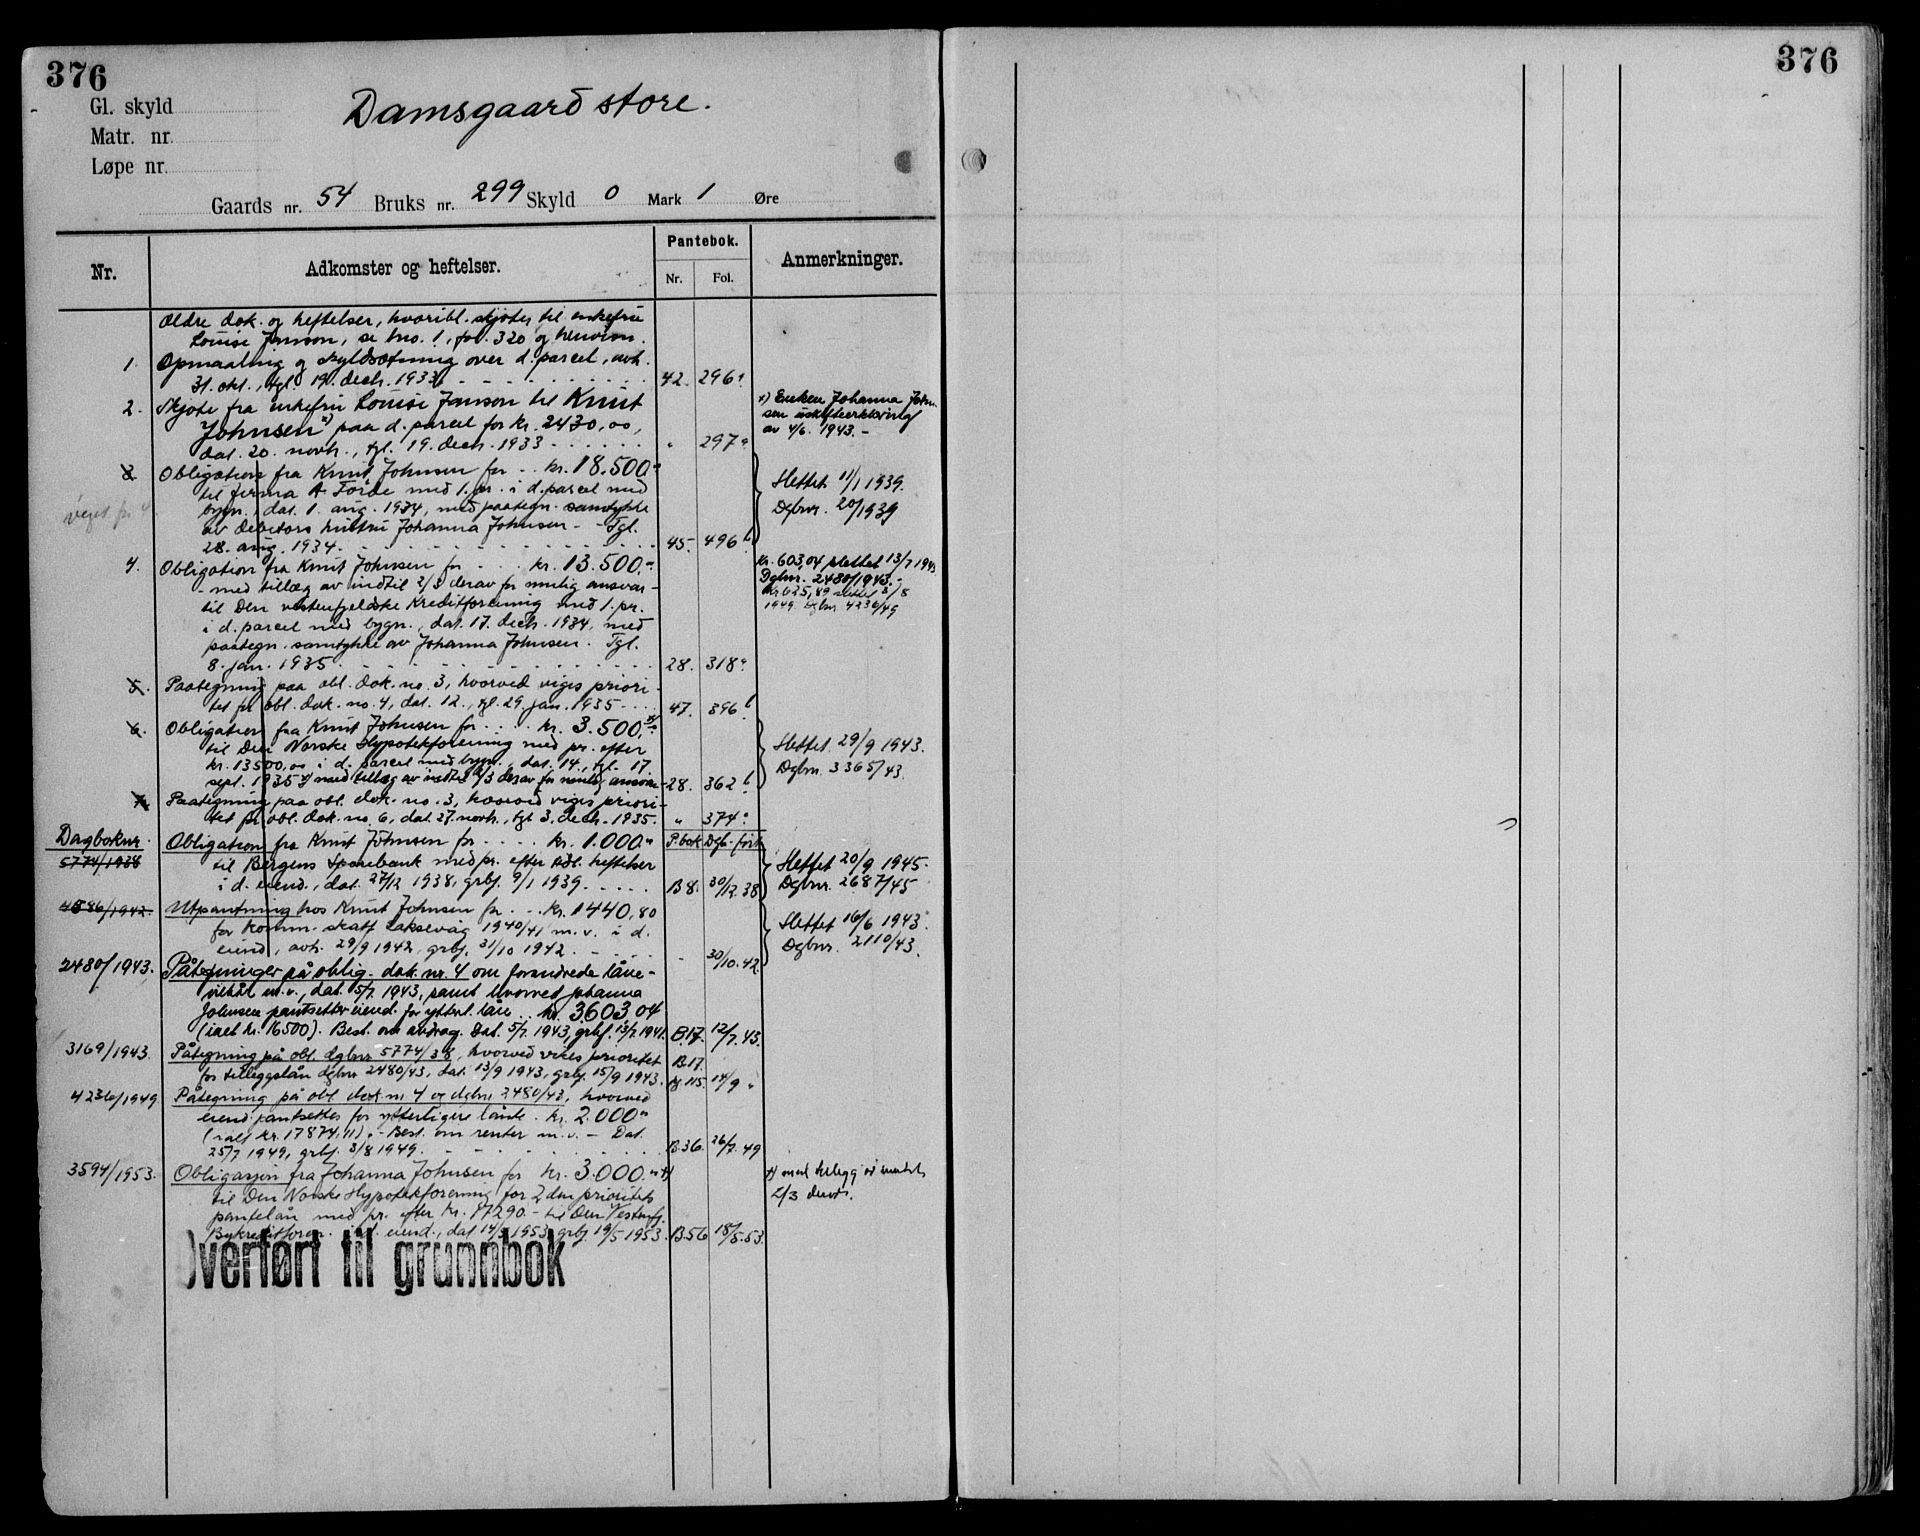 376
Gl. skyld
Matr. nr.
Løpe nr.
Damsgaard store.
Gaards nr. 54 Bruks nr. 299 Skyld 0 Mark 1 Øre
Nr.
Adkomster og heftelser.
Pantebok.
Nr. Fol.
Anmerkninger.
Ældre dok. og heftelser, hvoribl. skjøter til enkefru
Louise Janson, se bno. 1, fol. 320 og henvisn.
1. Opmaaling og skyldsætning over d. parcel, avh.
31. okt., tgl. 19. decb. 1933. 42. 296a.
2. Skjøte fra enkefru Louise Janson til Knut
Johnsen x) paa d. parcel for kr. 2430,00,
dat. 20. novb., tgl. 19. decb. 1933 " 297a
x) Enken Johanna John-
sen uskifteerklæring
av 4/6. 1943.-
3. Obligation fra Knut Johnsen for kr. 18.500.-
til firma A. Førde med 1. pr. i d. parcel med
bygn., dat. 1. aug. 1934, med paategn. samtykke
av debitors hustru Johanna Johnsen - Tgl.
28. aug. 1934. 45. 496b.
viget for 4
Slettet 11/1 1939.
Dgbnr. 20/1939
4. Obligation fra Knut Johnsen for kr. 13.500.-
- med tillæg av indtil 2/3 derav for mulig ansvar -
til Den vestenfjeldske Kreditforening med 1. pr.
i d. parcel med bygn., dat. 17. decb. 1934, med
paategn. samtykke av Johanna Johnsen. Tgl.
8. jan. 1935. 28. 318a.
Kr. 603,04 slettet 13/7 1943
Dgbnr. 2480/1943.-
Kr 625,89 slettet 3/8
1949. Dgbnr 4236/49
5. Paategning paa obl. dok. no. 3, hvorved viges priori-
tet for obl. dok. no. 4, dat. 12., tgl. 29. jan. 1935 47. 396b.
6. Obligation fra Knut Johnsen for kr. 3.500.- x)
til Den Norske Hypotekforening med pr. efter
kr. 13500,00 i d. parcel med bygn., dat. 14., tgl. 17
sept. 1935 x) med tillæg av indtil 2/3 derav for mulig ansvar - 28. 362b.
Slettet 29/9 1943.
Dgbnr. 3365/43.
7. Paategning paa obl. dok. no. 3, hvorved viges priori-
tet for obl. dok. no. 6, dat. 27. novb., tgl. 3. decb. 1935. " 374a.
Dagboknr. P.bok Dgb. ført
5774/1938 Obligation fra Knut Johnsen for kr. 1.000.-
til Bergens Sparebank med pr. efter ædl. heftelser
i d. eiend., dat. 27/12 1938, grbf. 9/1 1939. B 8. 30/12.38
Slettet 20/9 1945.
Dgbnr. 2687/45
4586/1942. Utpantning hos Knut Johnsen for kr. 1440,80
for komm. skatt Laksevåg 1940/41 m.v. i d.
eiend., avh. 29/9 1942, grbf. 31/10 1942. - 30/10.42.
Slettet 16/6 1943.
Dgbnr. 2110/43.
2480/1943. Påtegninger på oblig. dok. nr. 4 om forandrede låne-
vilkår m.v., dat. 5/7 1943, samt hvorved Johanna
Johnsen pantsetter eiend. for ytterl. lån kr. 3603,04
(ialt kr. 16500). Best. om avdrag. Dat. 5/7 1943, grbf. 13/7 1943. B.17. 12/7.43.
3169/1943. Påtegning på obl. dgbnr 5774/38, hvorved vikes prioritet
for tilleggslån dgbnr 2480/43, dat. 13/9 1943, grbf. 15/9 1943. B.17. 115. 14/9 "
4236/1949 Påtegning på obl dok nr 4 og dgbnr 2480/43, hvorved
eiend. pantsettes for ytterligere lånte kr. 2.000.-
(ialt kr. 17874,11). - Best. om renter m.v. - Dat.
25/7 1949, grbf. 3/8 1949. B.36. 26/7.49
3594/1953. Obligasjon fra Johanna Johnsen for kr. 3.000.- x)
til Den Norske Hypotekforening for 2den prioritets
pantelån med pr. efter kr. 17290.- til Den Vestenfj.
Bykreditforen. i d. eiend., dat. 14/5 1953, grbf. 19/5 1953. B.56 18/5.53.
x) med tillegg av inntil
2/3 derav.
Overført til grunnbok
376